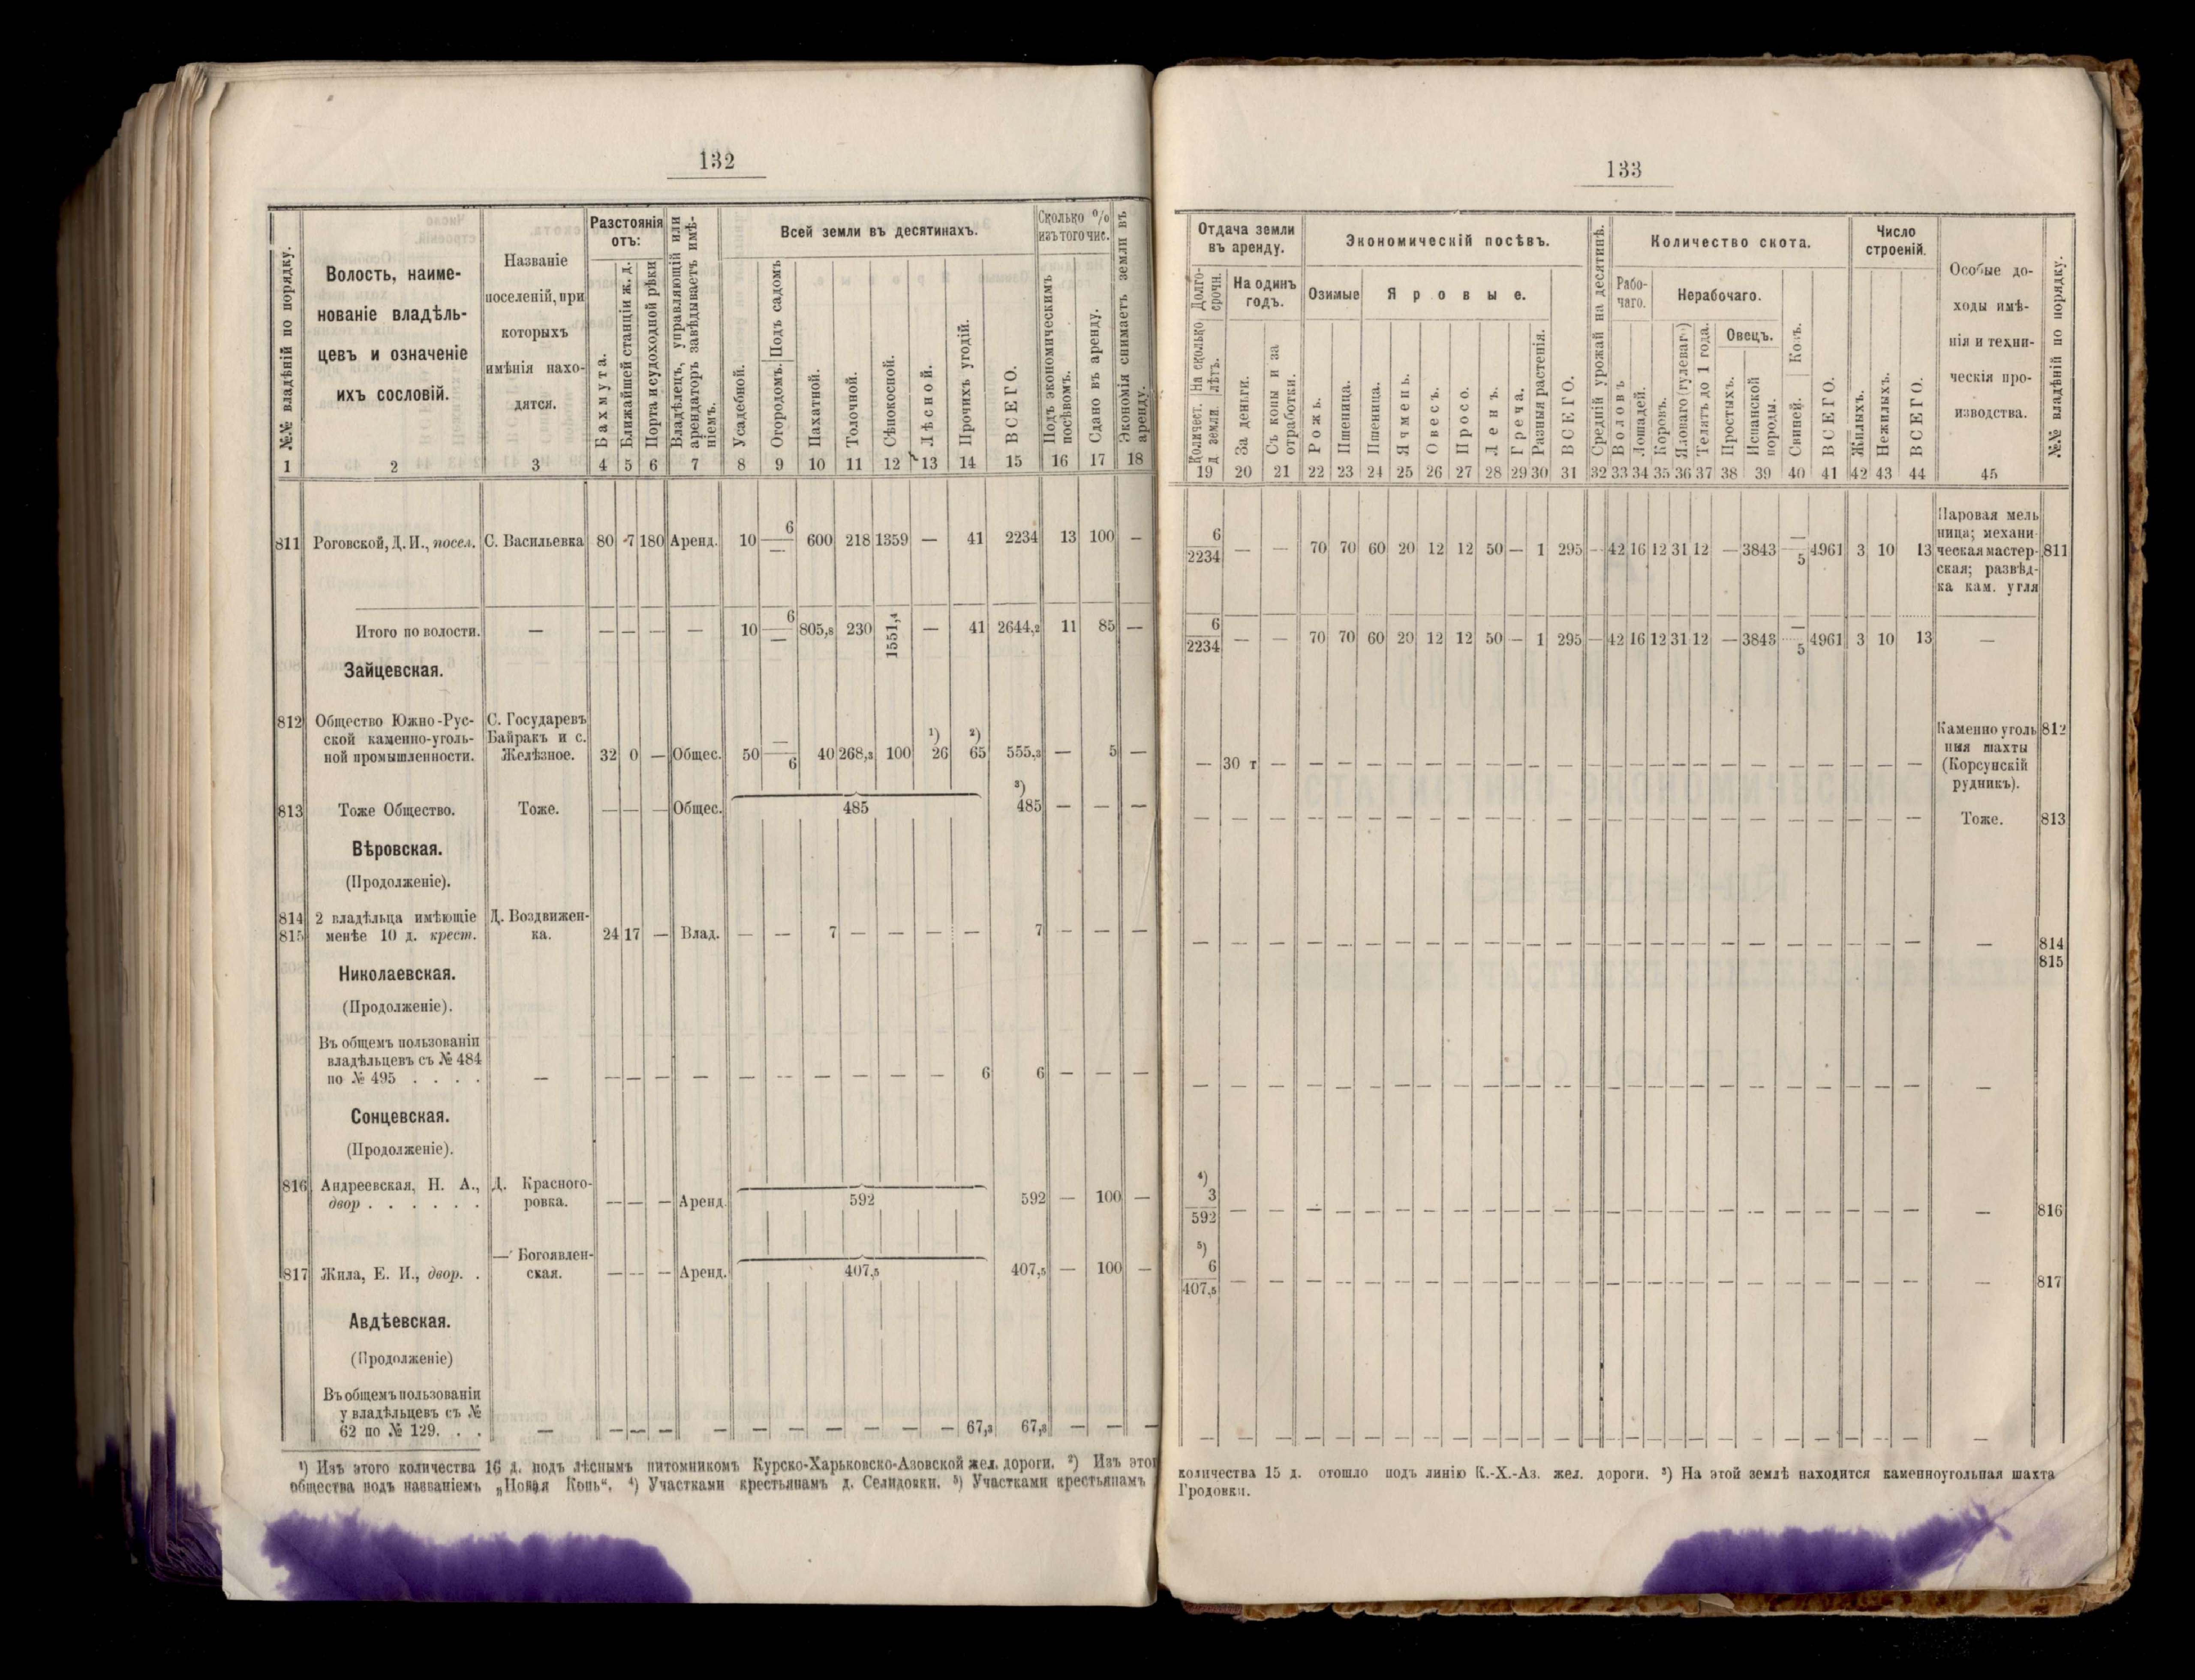 132
№№ владѣній по порядку.
Волость, наиме-
нованіе владѣль-
цевъ и означеніе
ихъ сословій.
Названіе
поселеній, при
которыхъ
имѣнія нахо-
дятся.
Разстоянія
отъ:
Бахмута.
Ближайшей станціи ж. д.
Порта и судоходной рѣки
Владѣлецъ, управляющій или
арендаторъ завѣдываетъ имѣ-
ніемъ.
Всей земли въ десятинахъ.
Усадебной.
Огородомъ. Подъ садомъ
Пахатной.
Толочной.
Сѣнокосной.
Лѣсной.
Прочихъ угодій.
ВСЕГО.
Сколько %
изъ того чис.
Подъ экономическимъ
посѣвомъ.
Сдано въ аренду.
Экономія снимаетъ земли въ
аренду.
1 2 3 4 5 6 7 8 9 10 11 12 13 14 15 16 17 18
811 Роговской, Д. И., посел. С. Васильевка 80 7 180 Аренд. 10 6/— 600 218 1359 — 41 2234 13 100 —
Итого по волости. — — — — — 10 6/— 805,8 230 1551,4 — 41 2644,2 11 85 —
Зайцевская.
812 Общество Южно-Рус- С. Государевъ
ской каменно-уголь- Байракъ и с.
ной промышленности. Желѣзное. 32 0 — Общес. 50 —/6 40 268,3 100 ¹) 26 ²) 65 555,3 — 5 —
813 Тоже Общество. Тоже. — — — Общес. 485 ³) 485 — — —
Вѣровская.
(Продолженіе).
814 2 владѣльца имѣющіе Д. Воздвижен-
815 менѣе 10 д. крест. ка. 24 17 — Влад. — — 7 — — — — 7 — — —
Николаевская.
(Продолженіе).
Въ общемъ пользованіи
владѣльцевъ съ № 484
по № 495 . . . . — — — — — — — — — — — 6 6 — — —
Сонцевская.
(Продолженіе).
816 Андреевская, Н. А., Д. Красного-
двор . . . . . . ровка. — — — Аренд. 592 592 — 100 —
— Богоявлен-
817 Жила, Е. И., двор. . ская. — — — Аренд. 407,5 407,5 — 100 —
Авдѣевская.
(Продолженіе)
Въ общемъ пользованіи
у владѣльцевъ съ №
62 по № 129. . . — — — — — — — — — — — 67,3 67,3 — — —
¹) Изъ этого количества 16 д. подъ лѣснымъ питомникомъ Курско-Харьковско-Азовской жел. дороги. ²) Изъ
общества подъ названіемъ „Новая Копь“. ⁴) Участками крестьянамъ д. Селидовки. ⁵) Участками крестьянамъ
133
Отдача земли
въ аренду.
Долго-
срочн.
Количест. На сколько
д земли. лѣтъ.
На одинъ
годъ.
За деньги.
Съ копы и за
отработки.
Экономическій посѣвъ.
Озимые
Рожь.
Пшеница.
Яровые.
Пшеница.
Ячмень.
Овесъ.
Просо.
Ленъ.
Греча.
Разныя растенія.
ВСЕГО.
Средній урожай на десятинѣ.
Количество скота.
Рабо-
чаго.
Воловъ
Лошадей.
Нерабочаго.
Коровъ.
Яловаго (гулеваг.)
Телятъ до 1 года.
Овецъ.
Простыхъ.
Испанской
породы.
Свиней. Козъ.
ВСЕГО.
Число
строеній.
Жилыхъ.
Нежилыхъ.
ВСЕГО.
Особые до-
ходы имѣ-
нія и техни-
ческія про-
изводства.
№№ владѣній по порядку.
19 20 21 22 23 24 25 26 27 28 29 30 31 32 33 34 35 36 37 38 39 40 41 42 43 44 45
6/2234 — — 70 70 60 20 12 12 50 — 1 295 — 42 16 12 31 12 — 3843 —/5 4961 3 10 13 811
Паровая мель
ница; механи-
ческая мастер-
ская; развѣд-
ка кам. угля
6/2234 — — 70 70 60 20 12 12 50 — 1 295 — 42 16 12 31 12 — 3843 —/5 4961 3 10 13 —
— 30 т — — — — — — — — — — — — — — — — — — — — — — — — 812
Каменноуголь
ныя шахты
(Корсунскій
рудникъ).
— — — — — — — — — — — — — — — — — — — — — — — — — — Тоже. 813
— — — — — — — — — — — — — — — — — — — — — — — — — — — 814
815
— — — — — — — — — — — — — — — — — — — — — — — — — — —
⁴)
3/592 — — — — — — — — — — — — — — — — — — — — — — — — — — 816
⁵)
6/407,5 — — — — — — — — — — — — — — — — — — — — — — — — — — 817
— — — — — — — — — — — — — — — — — — — — — — — — — — —
количества 15 д. отошло подъ линію К.-Х.-Аз. жел. дороги. ³) На этой землѣ находится каменноугольная шахта
Гродовки.